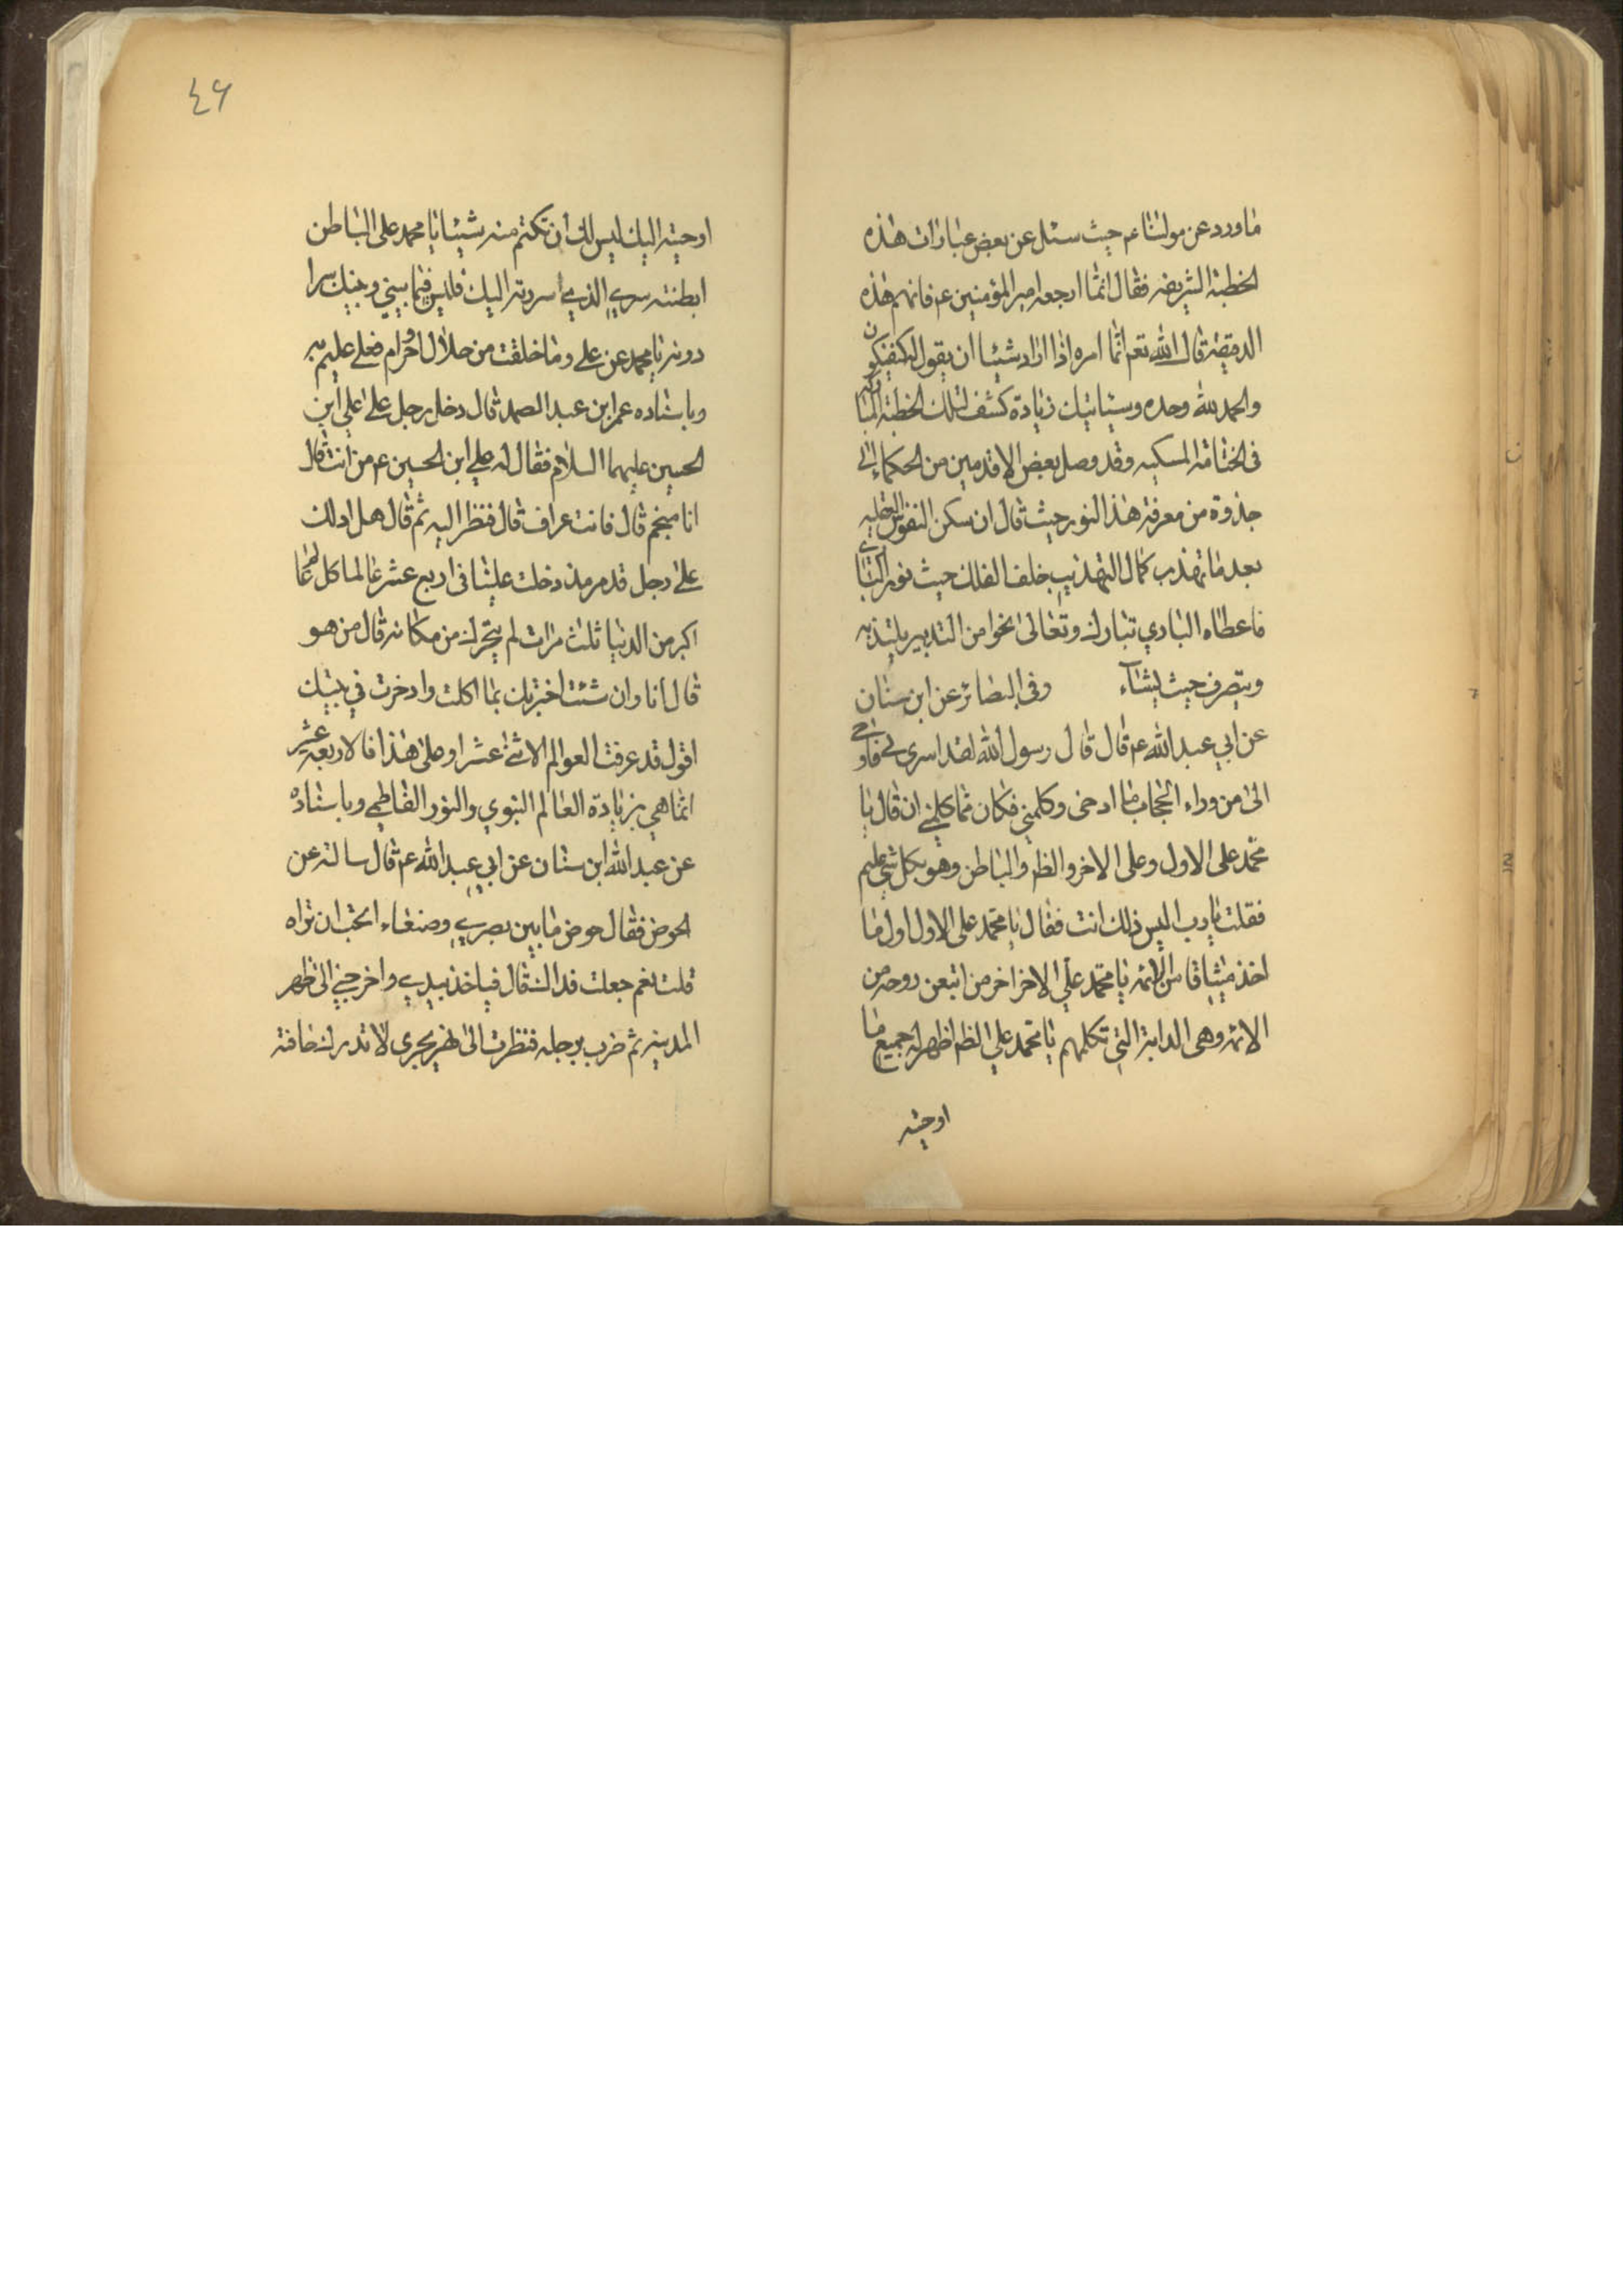 ما ورد عن مولانا عم حيث سئل عن بعض عبارات هذه
الخطبة الشريفه فقال انما ارجعه امير المؤمنين عم فافهم هذه
الدقيقة قال الله تعم انما امره اذا اراد شيئا ان يقول له كن فيكون
والحمد لله وحده وسياتيك زيادة كشف لتلك الخطبة المباركة
فى الختامة المسكيه وقد وصل بعض الاقدمين من الحكماء الى
جذوة من معرفة هذا النور حيث قال ان سكن النفوس العقليه
بعد ما تهذب كمال التهذيب خلف الفلك حيث نور الباري
فاعطاه الباري تبارك وتعالى نحوا من التدبير يلتذ به
ويتصرف حيث يشاء وفى البصائر عن ابن سنان
عن ابي عبد الله عم قال قال رسول الله لقد اسرى بي فاوحى
الى من وراء الحجاب ما اوحى وكلمني فكان مما كلمني ان قال يا
محمد على الاول وعلى الاخر والظم والباطن وهو بكل شئ عليم
فقلت يا رب اليس ذلك انت فقال يا محمد على الاول اول ما
اخذ ميثاقا من الائمه يا محمد علي الاخر اخر من اتبعن روحه من
الائمه وهى الدابة التي تكلمهم يا محمد علي الظم اظهر له جميع ما
اوحيته
٤٦
اوحيته اليك ليس لك ان تكتم منه شيئا يا محمد على الباطن
ابطنته سري الذي اسررته اليك فليس فيما بيني وبينك سرا
دونه يا محمد عن علي وما خلقت من حلال او حرام فعلي عليم به
وباسناده عمر ابن عبد الصمد قال دخل رجل على علي ابن
الحسين عليهما السلام فقال له علي ابن الحسين عم من انت قال
انا منجم قال فانت عراف قال فنظر اليه ثم قال هل ادلك
على رجل قد مر مذ دخلت علينا في اربع عشر عالما كل عالم
اكبر من الدنيا ثلث مرات لم يتحرك من مكانه قال من هو
قال انا وان شئت اخبرتك بما اكلت وادخرت في بيتك
اقول قد عرفت العوالم الاثنى عشر او على هذا فالاربعة عشر
انما هي بزيادة العالم النبوي والنور الفاطمي وباسناده
عن عبد الله ابن سنان عن ابي عبد الله عم قال سالته عن
الحوض فقال حوض ما بين بصري وصنعاء اتحب ان تراه
قلت نعم جعلت فداك قال فياخذ بيدي واخرجني الى ظهر
المدينه ثم ضرب برجله فنظرت الى نهر يجرى لا تدرك حافته